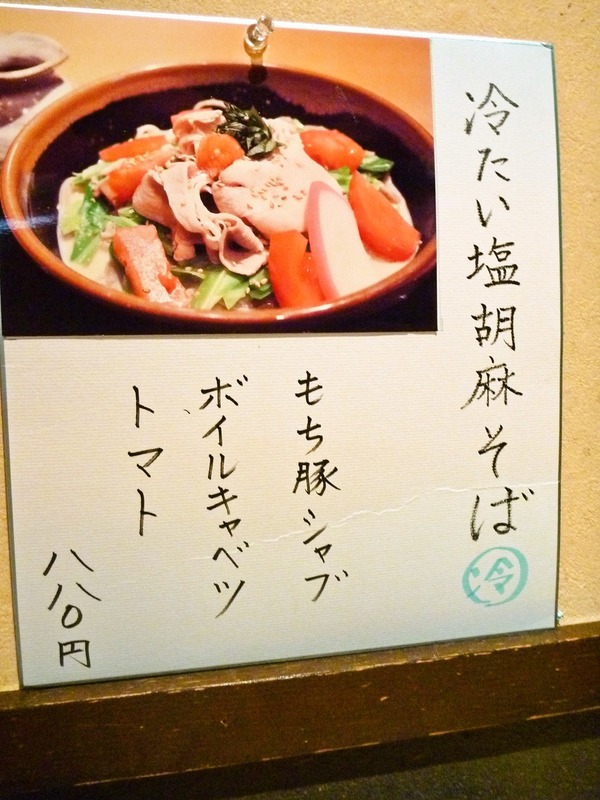 冷たい塩胡麻そば
冷
もち豚シャブ
ボイルキャベツ
トマト
八八〇円